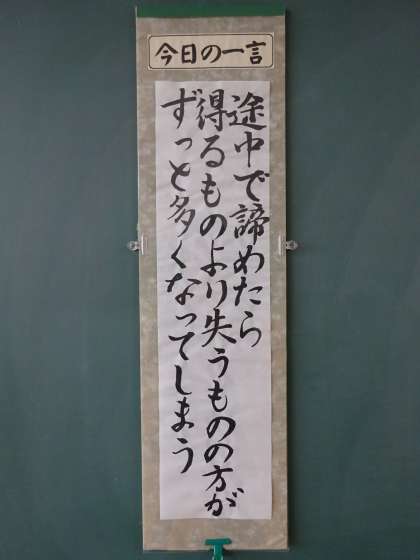 今日の一言
途中で諦めたら
得るものより失うものの方が
ずっと多くなってしまう